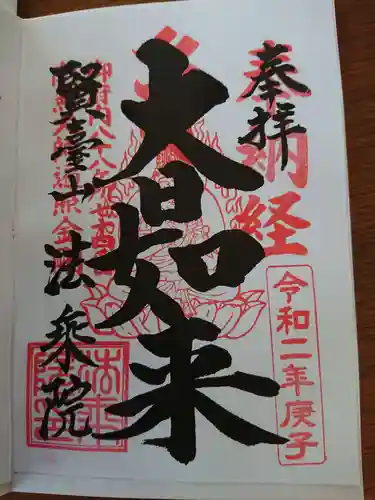 奉拝
納経
令和二年庚子
大日如来
賢臺山 法乗院